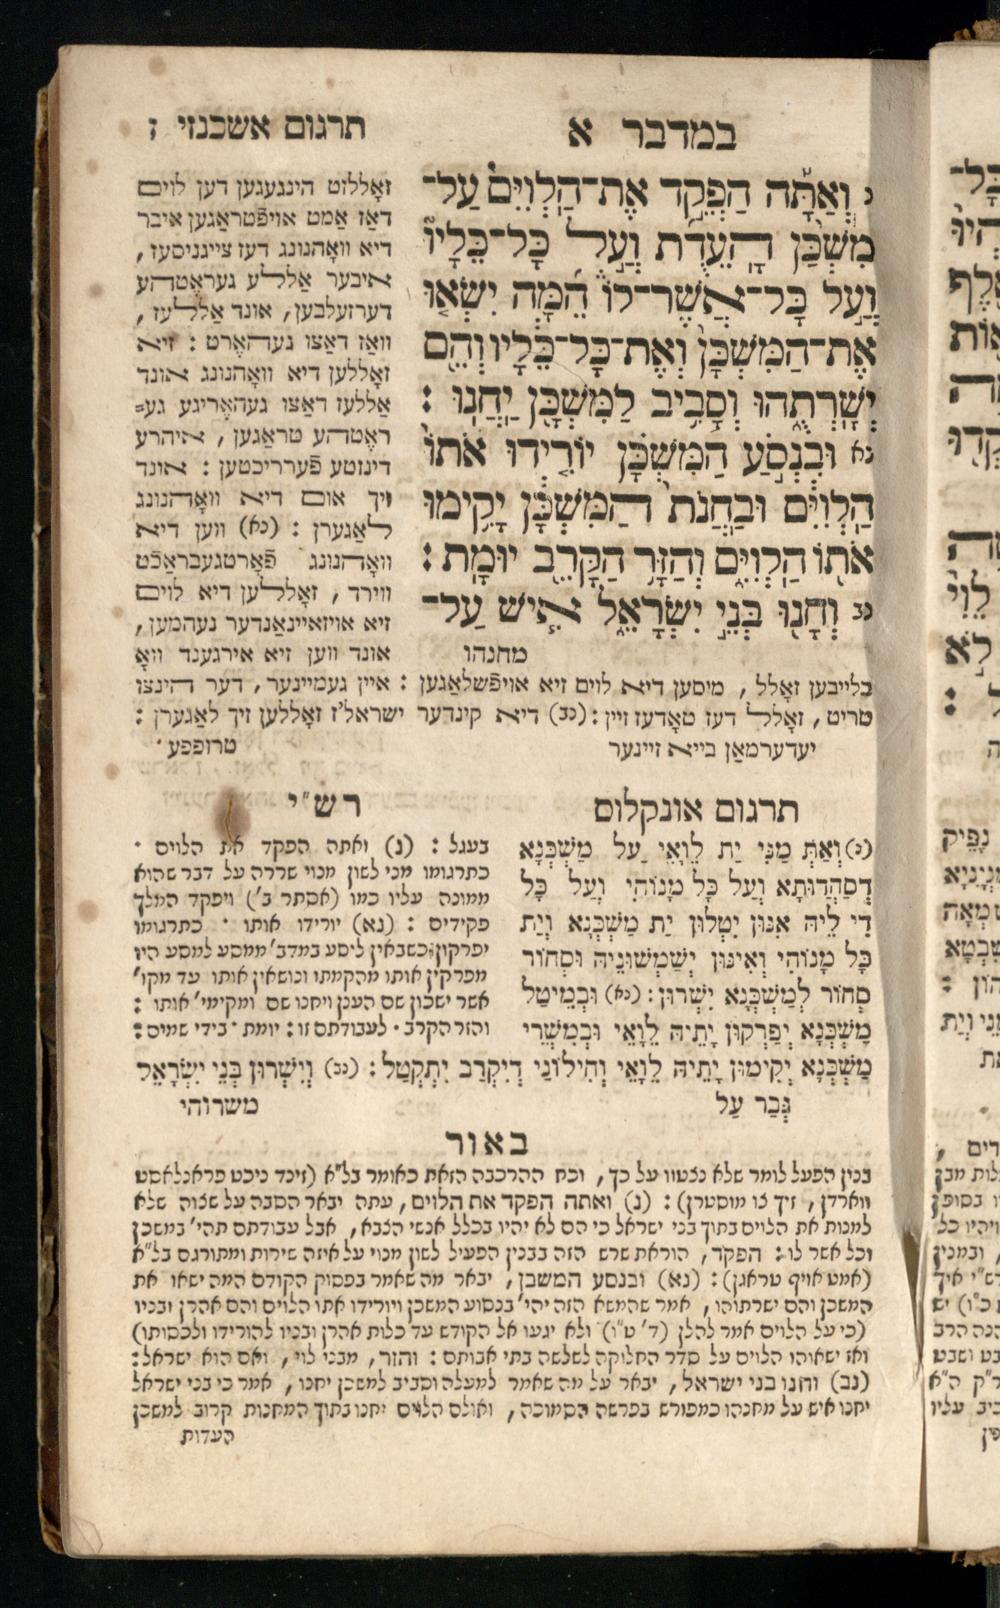 במדבר א
תרגום אשכנזי ז
נ וְאַתָּה הַפְקֵד אֶת־הַלְוִיִּם עַל־
מִשְׁכַּן הָעֵדֻת וְעַל כָּל־כֵּלָיו
וְעַל כָּל־אֲשֶׁר־לוֹ הֵמָּה יִשְׂאוּ
אֶת־הַמִּשְׁכָּן וְאֶת־כָּל־כֵּלָיו וְהֵם
יְשָׁרְתֻהוּ וְסָבִיב לַמִּשְׁכָּן יַחֲנוּ :
נא וּבִנְסֹעַ הַמִּשְׁכָּן יוֹרִידוּ אֹתוֹ
הַלְוִיִּם וּבַחֲנֹת הַמִּשְׁכָּן יָקִימוּ
אֹתוֹ הַלְוִיִּם וְהַזָּר הַקָּרֵב יוּמָת :
נב וְחָנוּ בְּנֵי יִשְׂרָאֵל אִישׁ עַל־
מחנהו
זאָללזט הינגעגען דען לוים
דאז אַמט אויפֿטראַגען איבר
דיא וואָהנונג דעז צייגניסעז ,
איבער אַללע געראֶטהע
דערזעלבען, אונד אַללעז ,
וואז דאצו געהאֶרט : זיא
זאָללען דיא וואָהנונג אונד
אַללעז דאַצו געהאֶריגע גע=
ראֶטהע טראַגען , איהרע
דינזטע פֿערריכטען : אונד
זיך אום דיא וואָהנונג
לאַגערן : (נא) ווען דיא
וואָהנונג פֿאָרטגעבראַכֿט
ווירד , זאָללען דיא לוים
זיא אויזאיינאַנדער נעהמען,
אונד ווען זיא אירגענד וואָ
בלייבען זאָלל , מיסען דיא לוים זיא אויפֿשלאַגען : איין געמיינער, דער הינצו
טריט , זאָלל דעז טאָדעז זיין : (נב) דיא קינדער ישראל'ז זאָללען זיך לאַגערן :
יעדערמאַן בייא זיינער טרופפע
תרגום אונקלוס
(נ) וְאַתְּ מַנִּי יַת לֵוָאֵי עַל מַשְׁכְּנָא
דְסַהֲדוּתָא וְעַל כָּל מָנוֹהִי וְעַל כָּל
דִי לֵיהּ אִנּוּן יִטְלוּן יַת מַשְׁכְּנָא וְיַת
כָּל מָנוֹהִי וְאִינוּן יְשַׁמְשׁוּנֵיהּ וּסְחוֹר
סְחוֹר לְמַשְׁכְּנָא יִשְׁרוּן : (נא) וּבְמִיטַל
מַשְׁכְּנָא יְפַרְקוּן יָתֵיהּ לֵוָאֵי וּבְמִשְׁרֵי
מַשְׁכְּנָא יְקִימוּן יָתֵיהּ לֵוָאֵי וְחִילוֹנַי דְיִקְרַב יִתְקְטַל : (נב) וְיִשְׁרוּן בְּנֵי יִשְׂרָאֵל
גְּבַר עַל משרוהי
רש"י
בעגל : (נ) ואתה הפקד את הלוים ·
כתרגומו מני לשון מנוי שררה על דבר שהוא
ממונה עליו כמו (אסתר ב') ויפקד המלך
פקידים : (נא) יורידו אותו · כתרגומו
יפרקון כשבאין ליסע במדב' ממסע למסע היו
מפרקין אותו מהקמתו ונושאין אותו עד מקו'
אשר ישכון שם הענן ויחנו שם ומקימי' אותו :
והזר הקרב · לעבודתם זו : יומת · בידי שמים :
באור
בנין הפעל לומר שלא נצטוו על כך , וכח ההרכבה הזאת כאומר בל"א (זיכד ניכט
ווארדן , זיך צו מוסטרן) : (נ) ואתה הפקד את הלוים, עתה יבאר הסבה על שצוה שלא
למנות את הלוים בתוך בני ישראל כי הם לא יהיו בכלל אנשי הצבא, אבל עבודתם תהי' במשכן
וכל אשר לו : הפקד, הוראת שרש הזה בבנין הפעיל לשון מנוי על איזה שירות ומתורגם בל"א
(אמט אויף טראגן) : (נא) ובנסע המשכן , יבאר מה שאמר בפסוק הקודם המה ישאו את
המשכן והם ישרתוהו, אמר שהמשא הזה יהי' בנסוע המשכן ויורידו אתו הלוים והם אהרן ובניו
(כי על הלוים אמר להלן (ד' ט"ו) ולא יגעו אל הקודש עד כלות אהרן ובניו להורידו ולכסותו)
ואז ישאוהו הלוים על סדר החלוקה לשלשה בתי אבותם : והזר, מבני לוי, ואם הוא ישראל :
(נב) וחנו בני ישראל, יבאר על מה שאמר למעלה וסביב למשכן יחנו , אמר כי בני ישראל
יחנו איש על מחנהו כמפורש בפרשה הסמוכה, ואולם הלוים יחנו בתוך המחנות קרוב למשכן
העדות